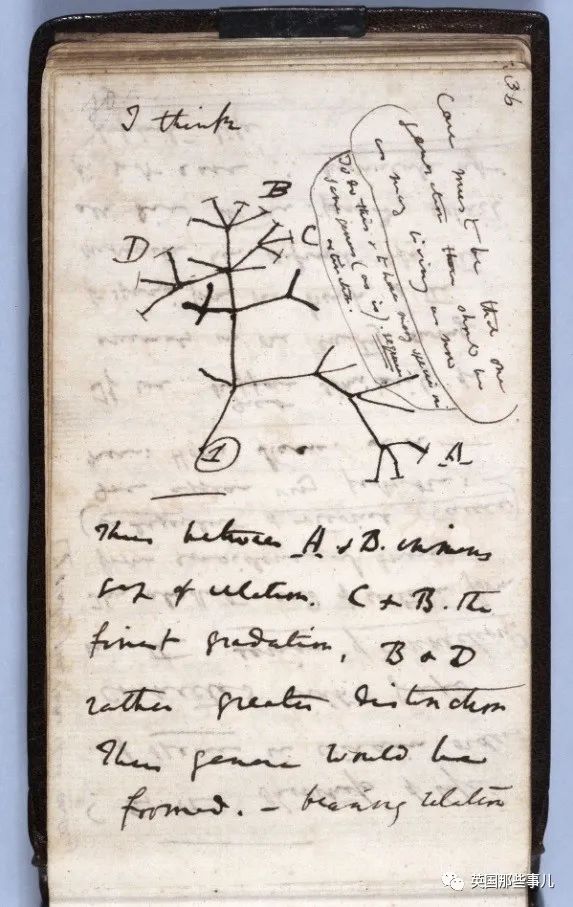 36
I think
Case must be that one
generation then should be
as many living as now
To do this & to have many species in
same genus (as is). requires
extinction.
B
C
D
A
1
Thus between A & B. immens
gap of relation. C & B. The
finest gradation, B & D
rather greater distinction
Thus genera would be
formed. — bearing relation
英国那些事儿